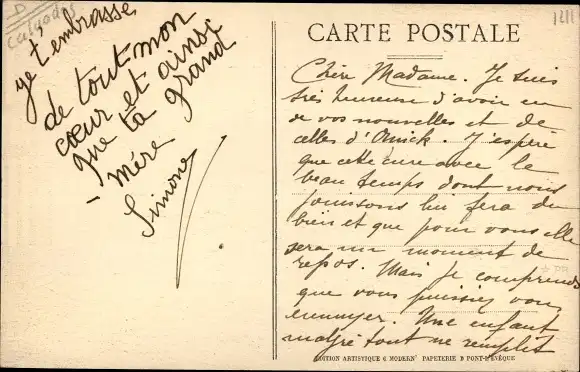 D
Calvados
je t'embrasse
de tout mon
cœur et ainsi
que ta grand
- mère
Simone
CARTE POSTALE
Chère Madame. Je suis
très heureuse d'avoir eu
de vos nouvelles et de
celles d'Anick. J'espère
que cette cure avec le
beau temps dont nous
jouissons lui fera du
bien et que pour vous elle
sera un moment de
repos. Mais je comprends
que vous puissiez vous
ennuyer. Une enfant
malgré tout ne remplit
EDITION ARTISTIQUE "MODERN" PAPETERIE PONT-L'EVÊQUE